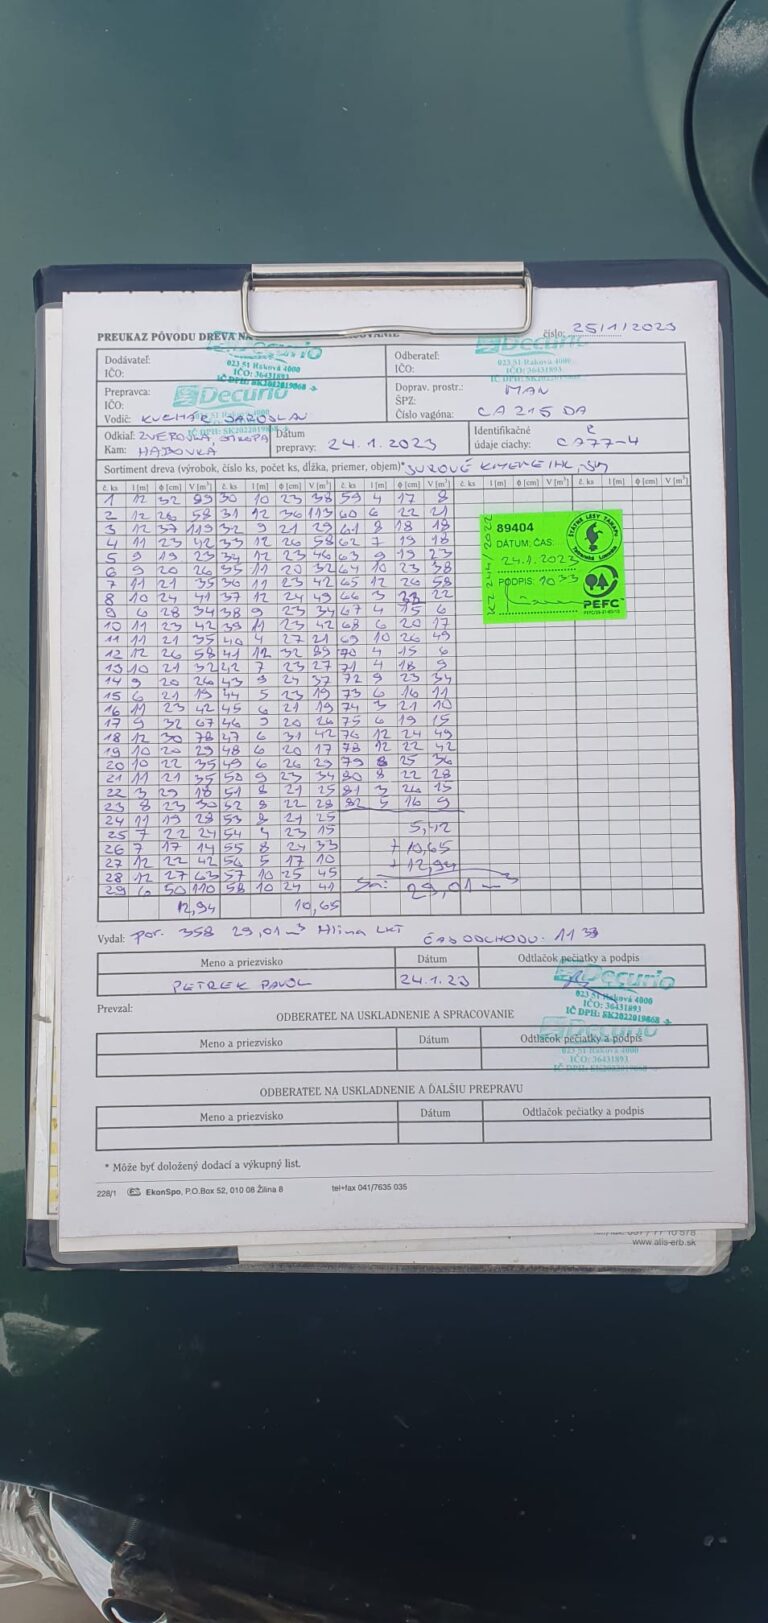 PREUKAZ PÔVODU DREVA NA
číslo: 25/1/2023
Decurio
023 51 Raková 4000
IČO: 36431893
IČ DPH: SK2022019868
Dodávateľ:
IČO:
Odberateľ:
IČO:
Prepravca:
IČO:
Vodič: KUCHAR JAROSLAV
Doprav. prostr.: MAN
ŠPZ:
Číslo vagóna: CA 215 DA
Odkiaľ: ZVEROVKA,
Kam: HABOVKA
Dátum
prepravy: 24.1.2023
Identifikačné
údaje ciachy: C Z77-4
Sortiment dreva (výrobok, číslo ks, počet ks, dĺžka, priemer, objem)* SUROVÉ KMENE IHL.
č. ks l [m] ϕ [cm] V [m³] č. ks l [m] ϕ [cm] V [m³] č. ks l [m] ϕ [cm] V [m³] č. ks l [m] ϕ [cm] V [m³] č. ks l [m] ϕ [cm] V [m³]
1 12 32 89 30 10 23 38 59 4 17 8
2 12 26 58 31 12 36 113 60 6 22 21
3 12 37 119 32 9 21 29 61 8 18 18
4 11 23 42 33 12 26 58 62 7 19 18
5 9 19 23 34 12 23 46 63 9 19 23
6 9 20 26 35 11 20 32 64 10 23 38
7 11 21 35 36 11 23 42 65 12 26 58
8 10 24 41 37 12 24 49 66 3 22
9 6 28 34 38 9 23 34 67 4 15 6
10 11 23 42 39 11 23 42 68 6 20 17
11 11 21 35 40 4 27 21 69 10 26 49
12 12 26 58 41 12 32 89 70 4 15 6
13 10 21 32 42 7 23 27 71 4 18 9
14 9 20 26 43 9 24 37 72 9 23 34
15 6 21 19 44 5 23 19 73 6 16 11
16 11 23 42 45 6 21 19 74 3 21 10
17 9 32 67 46 9 20 26 75 6 19 15
18 12 30 78 47 6 31 42 76 12 24 49
19 10 20 29 48 6 20 17 78 12 22 42
20 10 22 35 49 6 26 29 79 8 25 36
21 11 21 35 50 9 23 34 80 8 22 28
22 3 29 18 51 8 21 25 81 3 26 15
23 8 23 30 52 8 22 28 82 5 16 9
24 11 19 28 53 8 21 25
25 7 22 24 54 4 23 15 5,42
26 7 17 14 55 8 24 33 + 10,65
27 12 22 42 56 5 17 10 + 12,94
28 12 27 63 57 10 25 45
29 6 50 110 58 10 24 41 29,01
12,94 10,65
89404
DÁTUM, ČAS:
24.1.2023
PODPIS: 10 33
ŠTÁTNE LESY TANAPU
Tatranská Lomnica
PEFC
Vydal: por. 358 29,01 m³ Hlina LKT ČAS ODCHODU: 11 33
Meno a priezvisko Dátum Odtlačok pečiatky a podpis
PETREK PAVOL 24.1.23
Decurio
023 51 Raková 4000
IČO: 36431893
IČ DPH: SK2022019868
Prevzal:
ODBERATEĽ NA USKLADNENIE A SPRACOVANIE
Meno a priezvisko Dátum Odtlačok pečiatky a podpis
ODBERATEĽ NA USKLADNENIE A ĎALŠIU PREPRAVU
Meno a priezvisko Dátum Odtlačok pečiatky a podpis
* Môže byť doložený dodací a výkupný list.
228/1 EkonSpo, P.O.Box 52, 010 08 Žilina 8 tel+fax 041/7635 035
www.alis-erb.sk